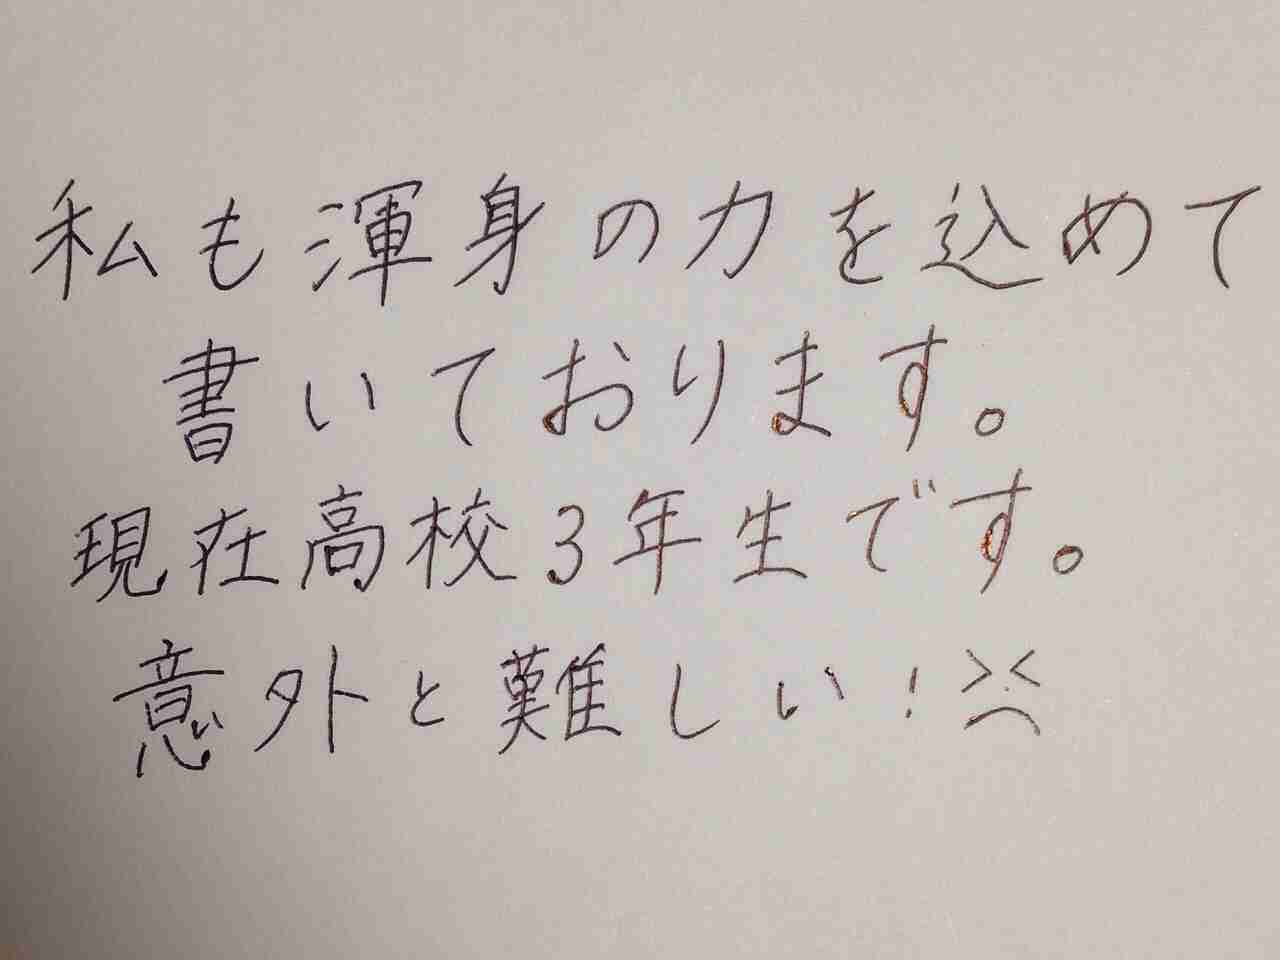 私も渾身の力を込めて
書いております。
現在高校3年生です。
意外と難しい！